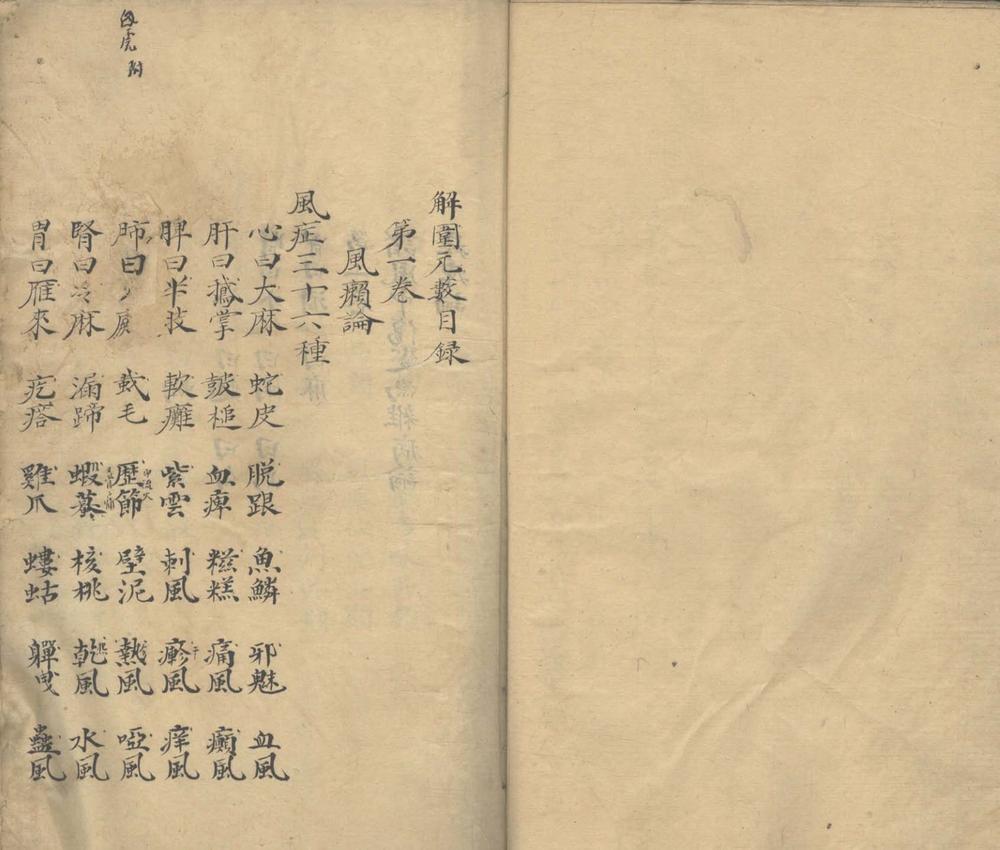 解圍元藪目录
第一卷
風癩論
風症三十六種
心曰大麻 蛇皮 脱跟 魚鱗 邪魅 血風
肝曰鵝掌 皷槌 血痺 糍糕 痛風 癲風
脾曰半肢 軟癱 紫雲 刺風 瘆風 痒風
肺曰 截毛 歷節 壁泥 熱風 啞風
腎曰冷麻 漏蹄 蝦蟇 核桃 乾風 水風
胃曰雁來 疙瘩 雞爪 螻蛄 軃曳 蠱風
虎 附